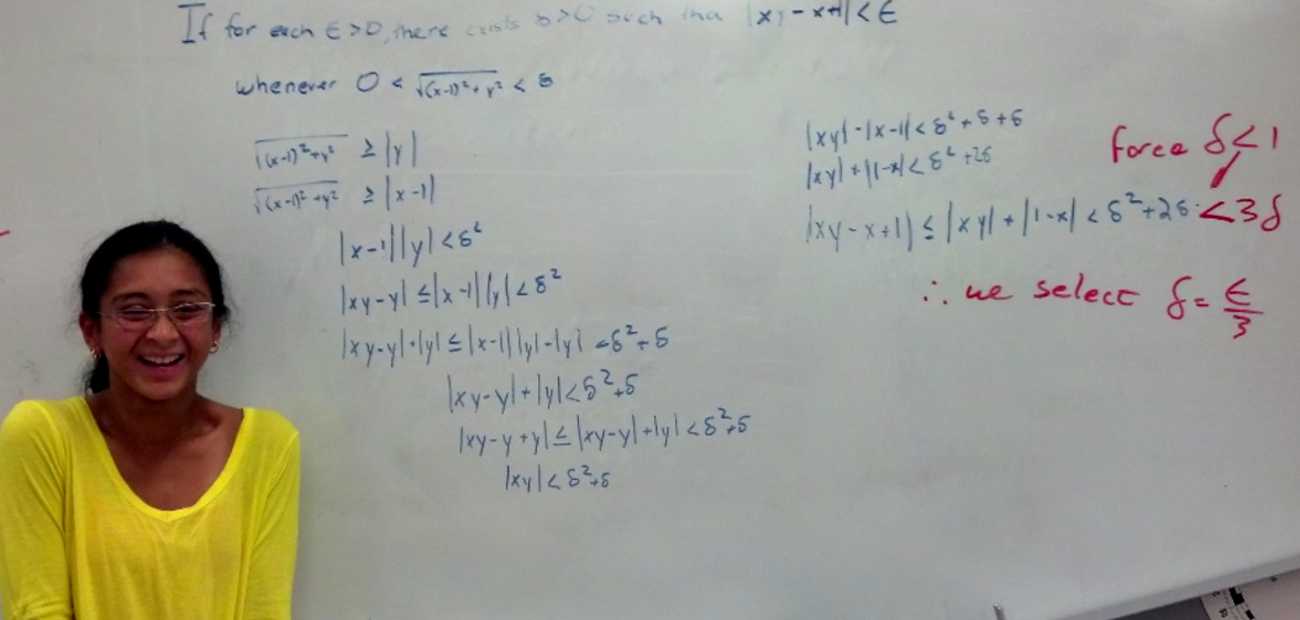 If for each ε>0, there exists δ>0 such tha |xy-x+1|<ε
whenever 0 < √(x-1)²+y² < δ
√(x-1)²+y² ≥ |y|
√(x-1)²+y² ≥ |x-1|
|x-1||y|<δ²
|xy-y|≤|x-1||y|<δ²
|xy-y|+|y|≤|x-1||y|+|y| <δ²+δ
|xy-y|+|y|<δ²+δ
|xy-y+y|≤|xy-y|+|y|<δ²+δ
|xy|<δ²+δ
|xy|+|x-1|<δ²+δ+δ
|xy|+|1-x|<δ²+2δ
|xy-x+1|≤|xy|+|1-x|<δ²+2δ<3δ
force δ<1
∴ we select δ=ε/3